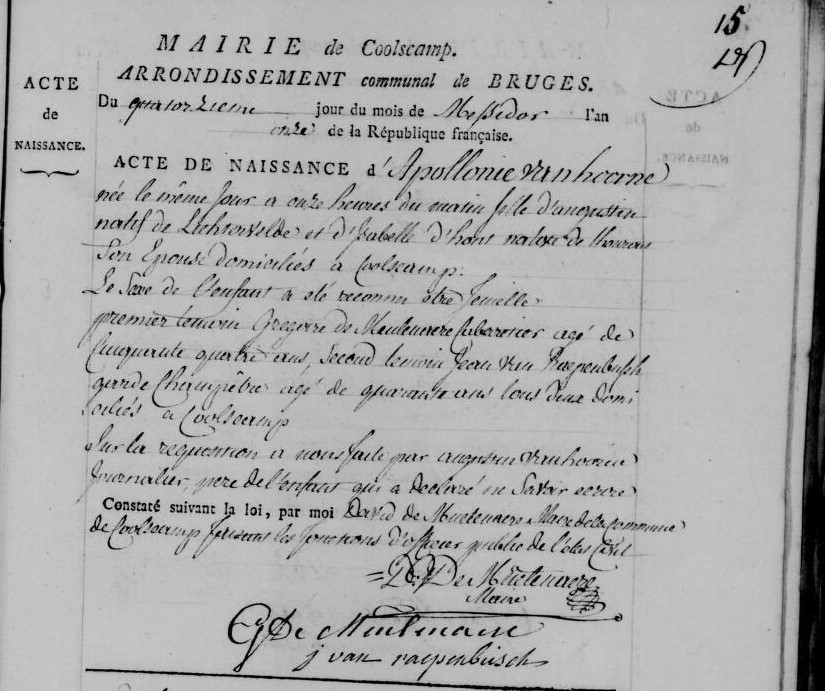 15
MAIRIE de Coolscamp.
ARRONDISSEMENT communal de BRUGES.
ACTE
de
NAISSANCE.
Du quatorzieme jour du mois de Messidor l'an
onze de la République française.
ACTE DE NAISSANCE d'Apollonie vanhoorne
née le même jour a onze heures du matin fille d'augustin
natif de Lichtervelde et d'Isabelle d'hont native de
Son Epouse domiciliés a Coolscamp.
Le Sexe de l'enfant a été reconnu être femelle
premier temoin Gregoire de Meulenaere Cabaretier agé de
Cinquante quatre ans, Second temoin Jean van Raepenbusch
garde Champêtre agé de quarante ans tous deux domi
ciliés a Coolscamp
Sur la requisition a nous faite par augustin vanhoorne
Journalier, pere de l'enfant qui a declaré ne Savoir ecrire
Constaté suivant la loi, par moi David de Muelenaere Maire de la Commune
de Coolscamp faisant les fonctions d'officier public de l'etat Civil
De Muelenaere
Maire
G De Meulenaere
j van raepenbusch